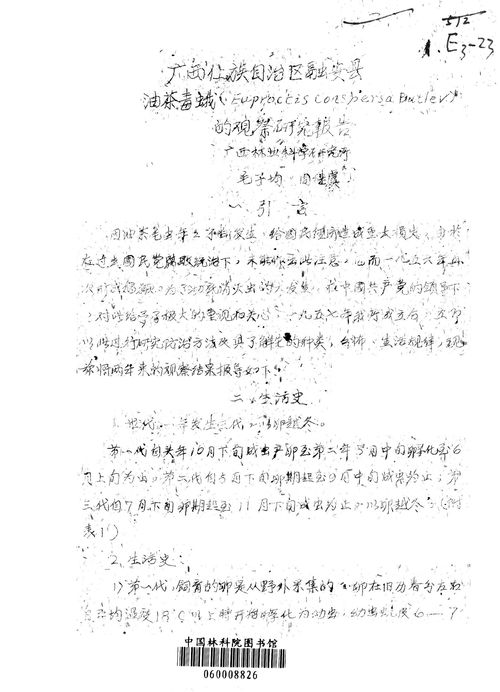 512
1. E3-23
广西壮族自治区融安县
油茶毒蛾(Euproctis conspersa Butler)
的观察研究报告
广西林业科学研究所
毛子均
一 引 言
因油茶毛虫年年不断发生,给国民经济造成重大损失,由于
在过去国民党腐败统治下,未能
灾情 发生,在中国共产党的领导下
对此给予了极大的重视和关心,一九五七年我所成立后,立即
进行研究防治方法及了解它的种类,分布,生活规律,现
将两年来的观察结果报导如下:
二、生活史
1. 世代:一年发生三代,以卵越冬。
第一代自头年10月下旬成虫产卵至第二年3月中旬孵化至6
月上旬为止;第二代自5月下旬卵期起至9月中旬成虫为止;第
三代自7月下旬卵期起至11月下旬成虫为止,以卵越冬(附
表1)
2. 生活史:
1)第一代:饲育的卵是从野外采集的,卵在旧历春分左右
平均温度18℃以上时开始孵化为幼虫,幼虫蜕皮6—7
中国林科院图书馆
060008826